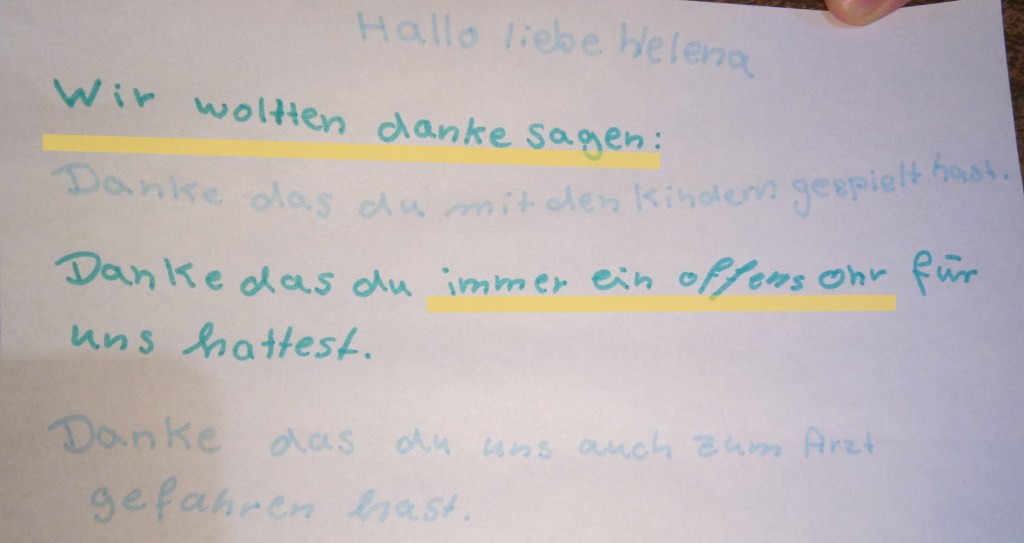 Hallo liebe Helena
Wir woltten danke sagen:
Danke das du mit den Kindern gespielt hast.
Danke das du immer ein offens Ohr für
uns hattest.
Danke das du uns auch zum Arzt
gefahren hast.